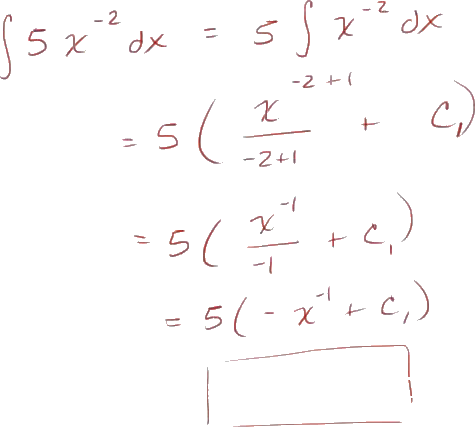 ∫ 5 x⁻² dx = 5 ∫ x⁻² dx
= 5 ( x⁻²⁺¹ / -2+1 + C₁ )
= 5 ( x⁻¹ / -1 + C₁ )
= 5 ( - x⁻¹ + C₁ )